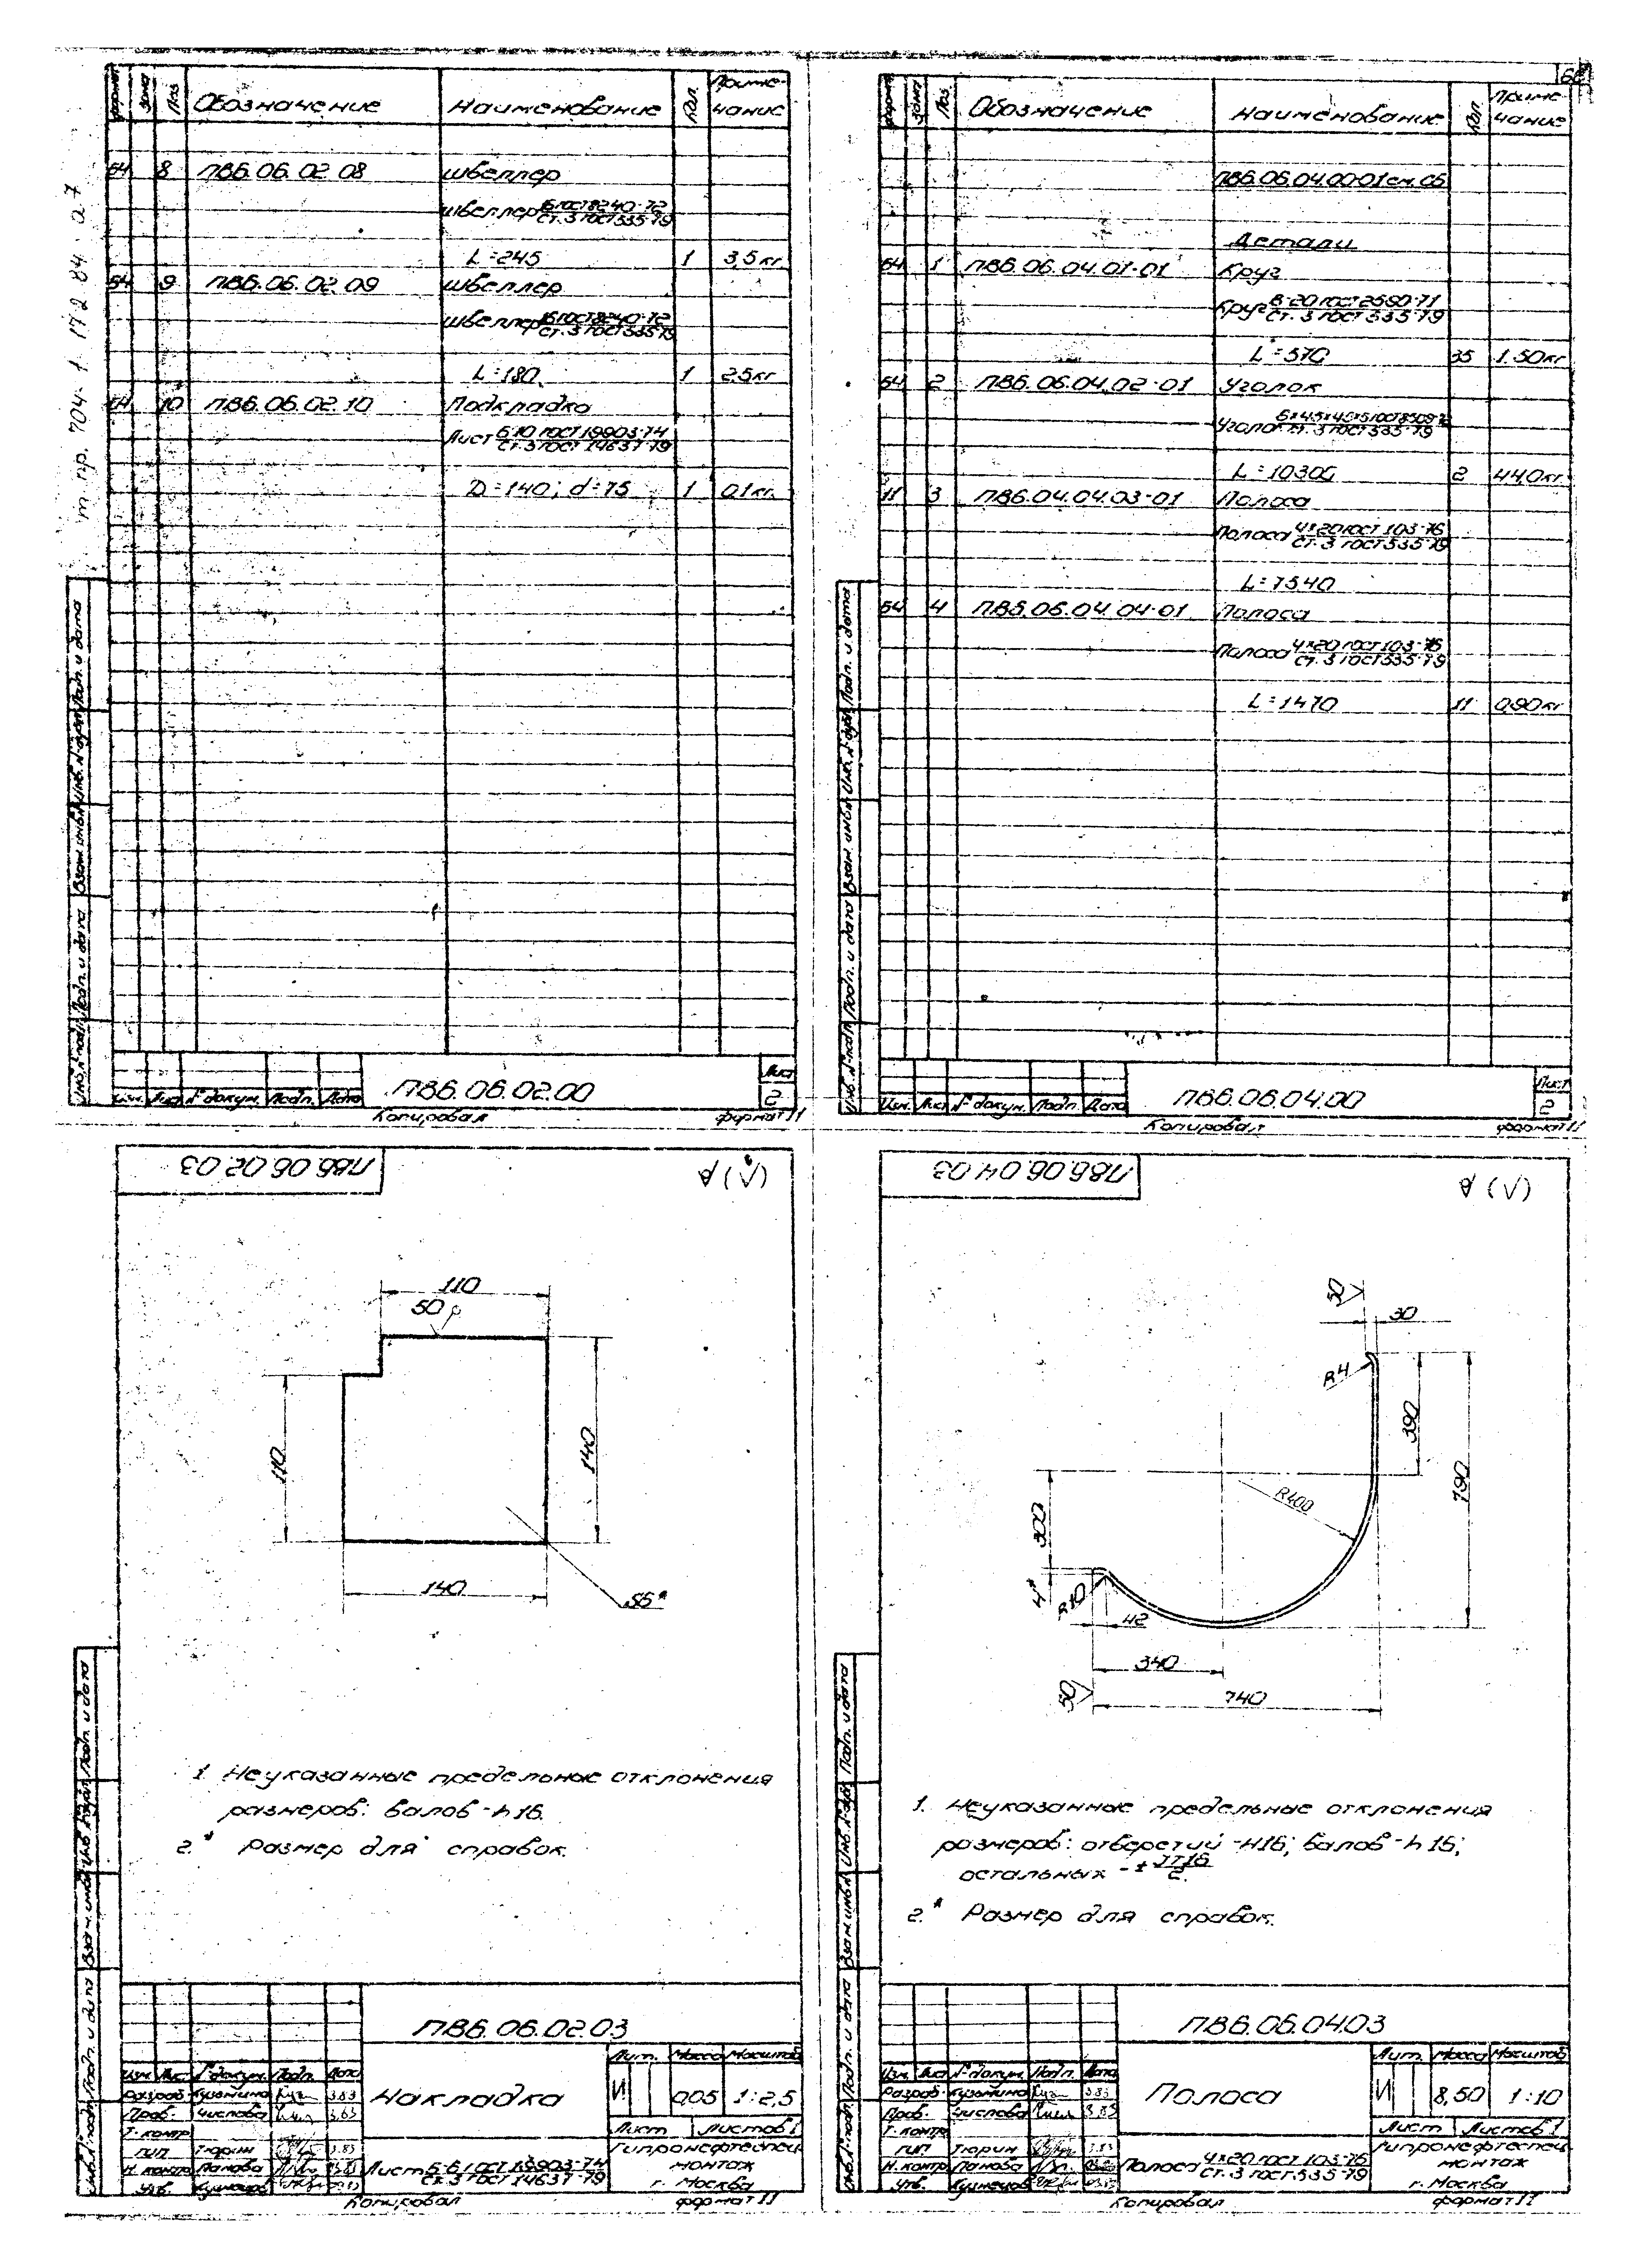 68
т пр. 704-1-172.84 а.7
формат Зона Поз Обозначение Наименование Кол Приме-
чание
64 8 ПВБ.06.02.08 Швеллер
Швеллер 16 ГОСТ 8240-72
Ст.3 ГОСТ 535-79
L=245 1 3,5 кг
64 9 ПВБ.06.02.09 Швеллер
Швеллер 16 ГОСТ 8240-72
Ст.3 ГОСТ 535-79
L=180 1 2,5 кг
64 10 ПВБ.06.02.10 Подкладка
Лист Б-10 ГОСТ 19903-74
Ст.3 ГОСТ 14637-79
D=140; d=75 1 0,1 кг.
Инв.N подл. Подп. и дата Взам. инв.N Инв. N дубл. Подп. и дата
Изм. Лист N докум. Подп. Дата
ПВБ.06.02.00
Лист
2
Копировал формат 11
формат Зона Поз Обозначение Наименование Кол Приме-
чание
ПВБ.06.04.00-01 см. СБ
Детали
64 1 ПВБ.06.04.01-01 Круг
Круг В-20 ГОСТ 2590-71
Ст.3 ГОСТ 535-79
L=570 35 1.50 кг
64 2 ПВБ.06.04.02-01 Уголок
Уголок Б-45×45×5 ГОСТ 8509-72
Ст.3 ГОСТ 535-79
L=10300 2 44,0 кг
11 3 ПВБ.04.04.03-01 Полоса
Полоса 4×20 ГОСТ 103-76
Ст.3 ГОСТ 535-79
L=1540
64 4 ПВБ.06.04.04-01 Полоса
Полоса 4×20 ГОСТ 103-76
Ст.3 ГОСТ 535-79
L=1470 11 0,90 кг
Инв.N подл. Подп. и дата Взам. инв.N Инв. N дубл. Подп. и дата
Изм. Лист N докум. Подп. Дата
ПВБ.06.04.00
Лист
2
Копировал формат 11
ПВБ.06.02.03
110
50 р
110
140
140
S5*
1. Неуказанные предельные отклонения
размеров: валов -h16.
2.* Размер для справок.
Инв.N подл. Подп. и дата Взам. инв.N Инв. N дубл. Подп. и дата
ПВБ.06.02.03
Изм. Лист N докум. Подп. Дата
Разраб. Кузьмина 3.83
Пров. Числова 3.83
Т. контр.
ГИП Тюрин 3.83
Н. контр. Панова
Утв. Кузнецов
Накладка
Лит. Масса Масштаб
И 0,05 1:2,5
Лист Листов 1
Лист Б-6 ГОСТ 19903-74
Ст.3 ГОСТ 14637-79
Гипронефтеспец
монтаж
г. Москва
Копировал формат 11
ПВБ.06.04.03
50
30
R4
390
790
R400
300
4*
R10
42
340
50
740
1. Неуказанные предельные отклонения
размеров: отверстий -H16; валов -h16;
остальных -± IT16
2.
2.* Размер для справок.
Инв.N подл. Подп. и дата Взам. инв.N Инв. N дубл. Подп. и дата
ПВБ.06.04.03
Изм. Лист N докум. Подп. Дата
Разраб. Кузьмина 3.83
Пров. Числова 3.83
Т. контр.
ГИП Тюрин 3.83
Н. контр. Панова
Утв. Кузнецов
Полоса
Лит. Масса Масштаб
И 8,50 1:10
Лист Листов 1
Полоса 4×20 ГОСТ 103-76
Ст.3 ГОСТ 535-79
Гипронефтеспец
монтаж
г. Москва
Копировал формат 11